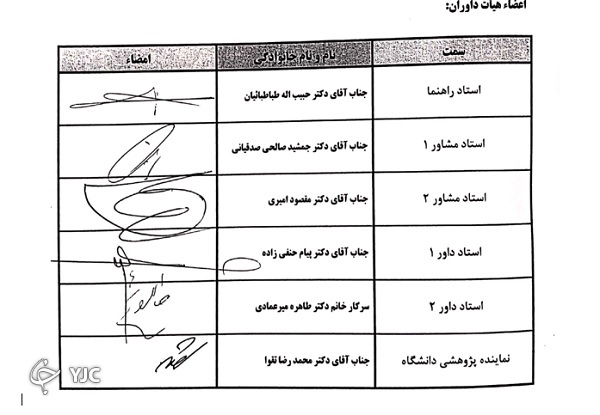 اعضاء هیات داوران:
سمت نام و نام خانوادگی امضاء
استاد راهنما جناب آقای دکتر حبیب اله طباطبائیان
استاد مشاور ۱ جناب آقای دکتر جمشید صالحی صدقیانی
استاد مشاور ۲ جناب آقای دکتر مقصود امیری
استاد داور ۱ جناب آقای دکتر پیام حنفی زاده
استاد داور ۲ سرکار خانم دکتر طاهره میرعمادی
نماینده پژوهشی دانشگاه جناب آقای دکتر محمد رضا تقوا
YJC